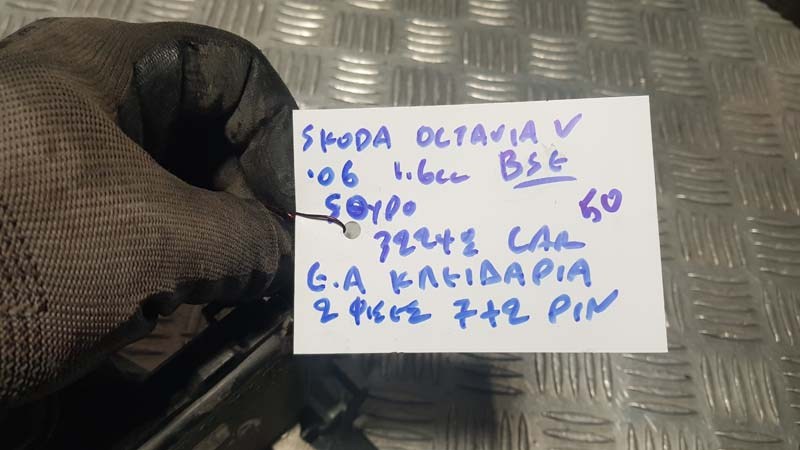 SKODA OCTAVIA V
.06 1.6cc BSE
5ΘΥΡΟ 50
32242 CAR
Ε.Α ΚΛΕΙΔΑΡΙΑ
2 ΦΙΣΕΣ 7+2 PIN